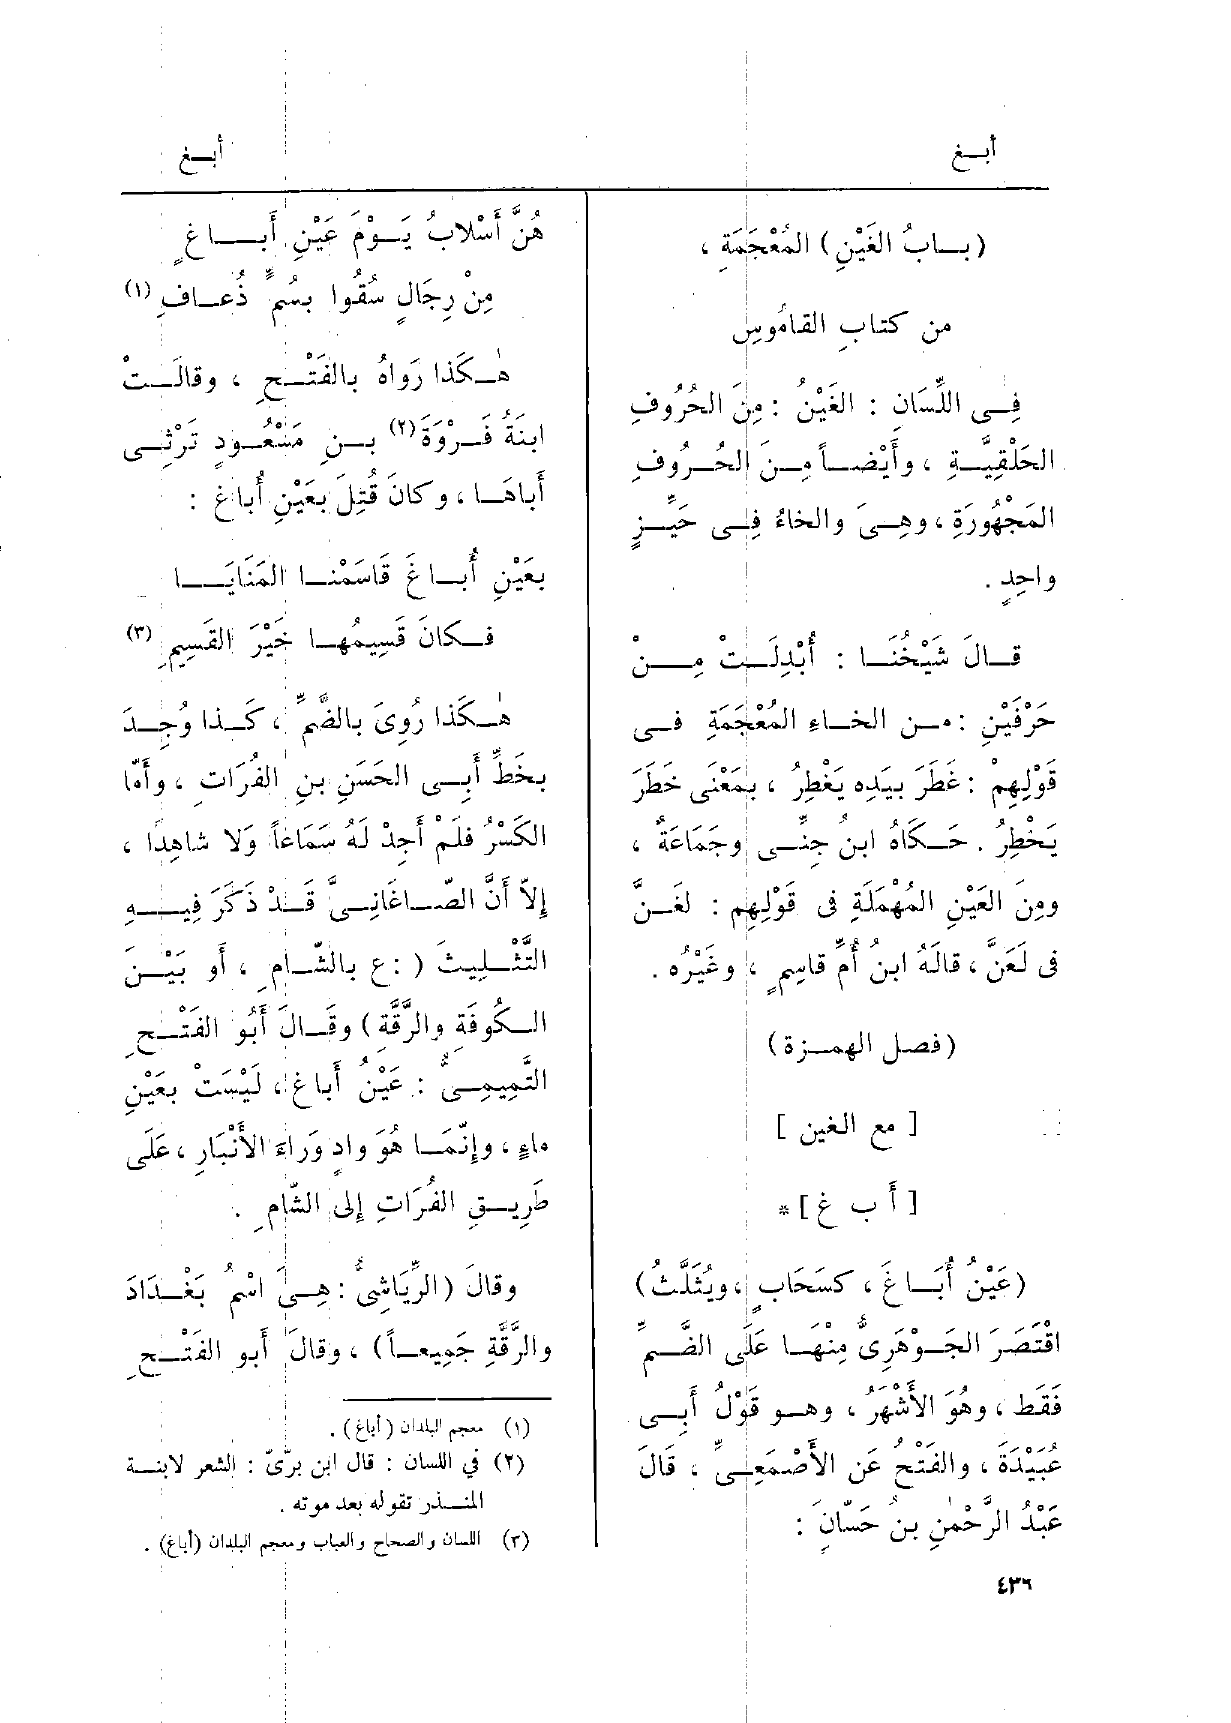 أبـغ
أبـغ
(بـابُ الغَيْنِ) المُعْجَمَةِ ،
من كتابِ القامُوسِ
فِـى اللِّسَانِ : الغَيْنُ : مِنَ الحُرُوفِ
الحَلْقِيَّـةِ ، وأَيْضـاً مِـنَ الحُـرُوفِ
المَجْهُورَةِ ، وهِـىَ والخاءُ فِـى حَيِّـزٍ
واحِدٍ .
قـالَ شَيْخُنَـا : أُبْدِلَـتْ مِـنْ
حَرْفَيْنِ : مـن الخـاءِ المُعْجَمَةِ فـى
قَوْلِهِمْ : غَطَرَ بيَدِه يَغْطِرُ ، بمَعْنَى خَطَرَ
يَخْطِرُ . حَـكاهُ ابنُ جِنِّـى وجَمَاعَةٌ ،
ومِنَ العَيْنِ المُهْمَلَةِ فى قَوْلِهِم : لَغَـنَّ
فى لَعَنَّ ، قالَهُ ابنُ أُمِّ قاسِمٍ ، وغَيْرُه .
(فصـل الهمـزة)
[ مع الغين ]
[ أ ب غ ] *
(عَيْنُ أُبَـاغَ ، كسَحَابٍ ، ويُثَلَّثُ)
اقْتَصَرَ الجَـوْهَرِىُّ مِنْهَـا عَلَى الضَّـمِّ
فَقَط ، وهُوَ الأَشْهَرُ ، وهـو قَوْلُ أَبِـى
عُبَيْدَةَ ، والفَتْحُ عَن الأَصْمَعِـىِّ ، قالَ
عَبْدُ الرَّحْمٰنِ بـنُ حَسّانَ :
هُنَّ أَسْلابُ يَـوْمَ عَيْنِ أَبـاغٍ
مِنْ رِجَالٍ سُقُوا بسُمٍّ ذُعـافِ (١)
هٰـكَذا رَواهُ بالفَتْـحِ ، وقالَـتْ
ابنَةُ فَـرْوَةَ (٢) بـنِ مَسْعُـودٍ تَرْثِـى
أَباهَـا ، وكانَ قُتِلَ بعَيْنِ أُباغَ :
بعَيْنِ أُبـاغَ قَاسَمْنـا المَنَايَـا
فـكانَ قَسِيمُهـا خَيْرَ القَسِيمِ (٣)
هٰـكَذا رُوِىَ بالضَّمِّ ، كَـذا وُجِـدَ
بخَطِّ أَبِـى الحَسَنِ بنِ الفُرَاتِ ، وأَمّا
الكَسْرُ فلَمْ أَجِدْ لَهُ سَمَاعاً وَلا شاهِدًا ،
إِلاّ أَنَّ الصّـاغَانِـىَّ قَـدْ ذَكَرَ فِيـهِ
التَّثْـلِيثَ ( : ع بالشّـامِ ، أَو بَيْـنَ
الـكُوفَةِ والرَّقَّةِ) وقَـالَ أَبُو الفَتْـحِ
التَّمِيمِـىُّ : عَيْنُ أُباغ ، لَيْسَتْ بعَيْنِ
ماءٍ ، وإِنَّمَـا هُوَ وادٍ وَراءَ الأَنْبَارِ ، عَلَى
طَرِيـقِ الفُرَاتِ إِلى الشّامِ .
وقالَ (الرِّيَاشِىُّ : هِـىَ اسْمُ بَغْـدَادَ
والرَّقَّةِ جَمِيعـاً) ، وقالَ أَبو الفَتْـحِ
(١) معجم البلدان (أباغ) .
(٢) في اللسان : قال ابن برّىّ : الشعر لابنـة
المنـذر تقوله بعد موته .
(٣) اللسان والصحاح والعباب ومعجم البلدان (أباغ) .
٤٣٦